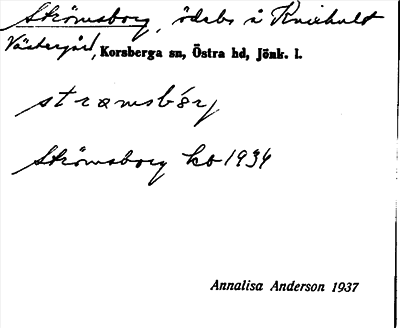 Strömsborg, ödebs å Knixhult
Västergård, Korsberga sn, Östra hd, Jönk. l.
strömsbórj
Strömsborg kb 1934
Annalisa Anderson 1937